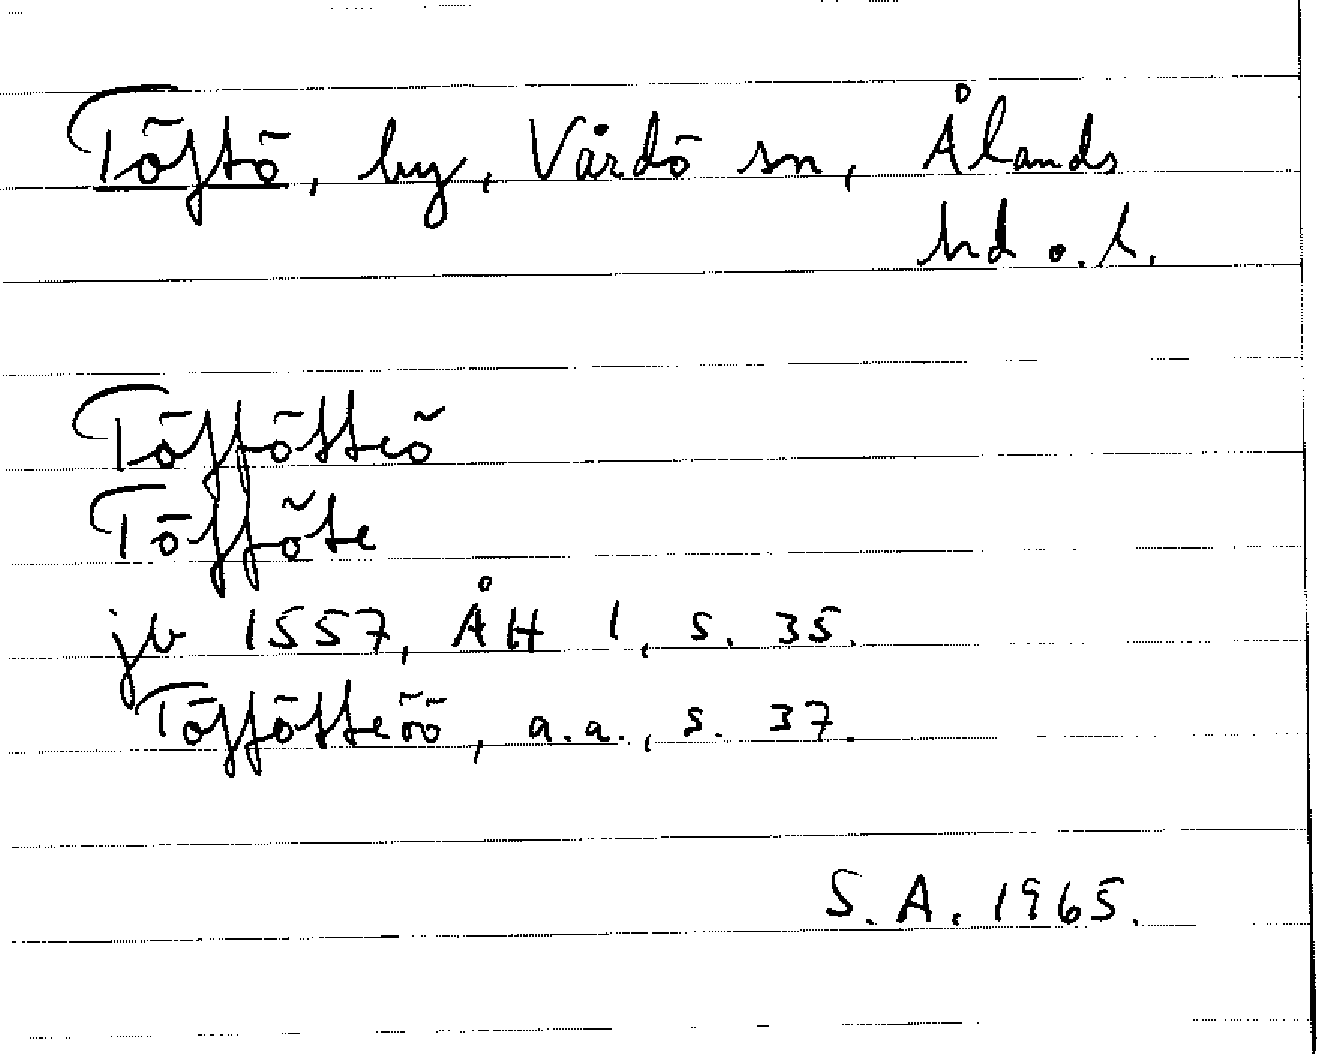 Töftö, by, Vårdö sn, Ålands
hd o. l.
Töffötteö
Töfföte
jb 1557, ÅH 1, s. 35.
Töffötteöö, a.a., s. 37.
S. A. 1965.